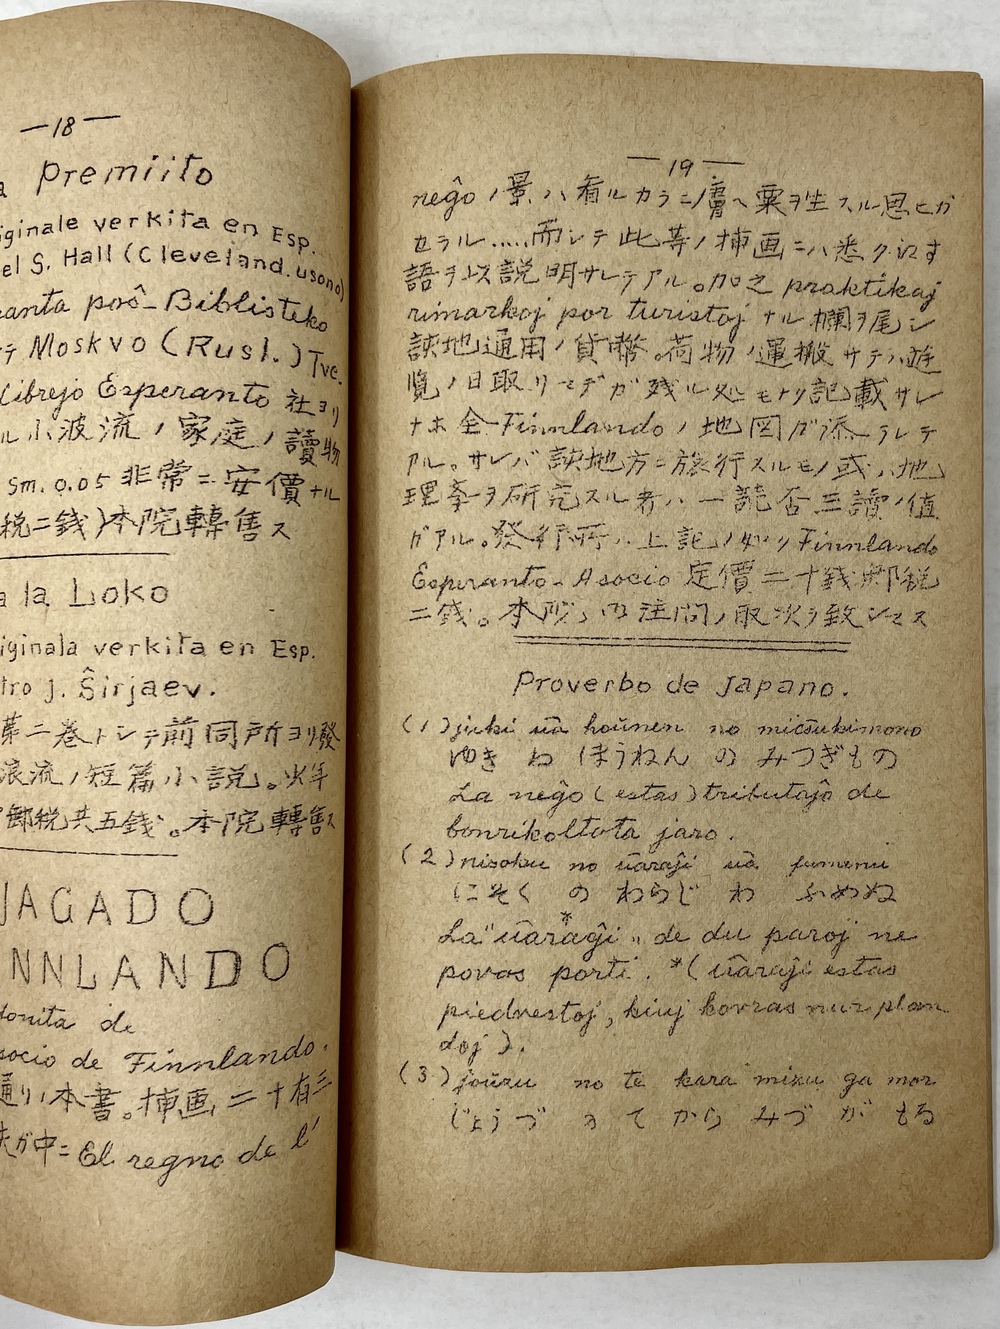 —18—
a Premiito
iginale verkita en Esp.
el S. Hall (Cleveland. usono)
ranta poŝ-Biblisteko
テ Moskvo (Rusl.) Tve.
Librejo Esperanto 社ヨリ
ル小波流ノ家庭ノ讀物
Sm. 0.05 非常ニ安價ナル
税二錢)本院轉售ス
a la Loko
iginala verkita en Esp.
tro j. Ŝirjaev.
第二巻トシテ前同所ヨリ發
浪流ノ短篇小説。火年
郵税共五錢。本院轉售ス
JAGADO
NNLANDO
donita de
socio de Finnlando.
通リ本書。挿画二十有三
夫ガ中ニ El regno de l'
—19—
neĝo ノ景ハ看ルカラニ膚ヘ粟ヲ生スル思ヒガ
セラル.....而シテ此等ノ挿画ニハ悉ク
語ヲ以説明サレテアル。加之 praktikaj
rimarkoj por turistoj ナル欄ヲ尾シ
該地通用ノ貨幣。荷物ノ運搬サテハ遊
覧ノ日取リマデガ残ル処モナク記載サレ
ナホ全 Finnlando ノ地図ガ添ラレテ
アル。サレバ該地方ニ旅行スルモノ或ハ地
理学ヲ研究スル者ハ一読否三讀ノ値
ガアル。發行所ハ上記ノ如ク Finnlando
Esperanto-Asocio 定價二十錢郵税
二錢。本院ハ注問ノ取次ヲ致シマス
Proverbo de Japano.
(1) juki ŭa hoŭnen no micŭukimono
ゆき わ ほうねん の みつぎもの
La neĝo (estas) tributaĵo de
bonrikoltota jaro.
(2) nisoku no ŭaraĵi ŭa fumenu
にそく の わらじ わ ふめぬ
La "ŭaraĝi*" de du paroj ne
povas porti. *(ŭaraĵi estas
piedvestoj, kiuj kovras nur plan-
doj).
(3) ĵoŭzu no te kara mizu ga mor
じようづ の て から みづ が もる